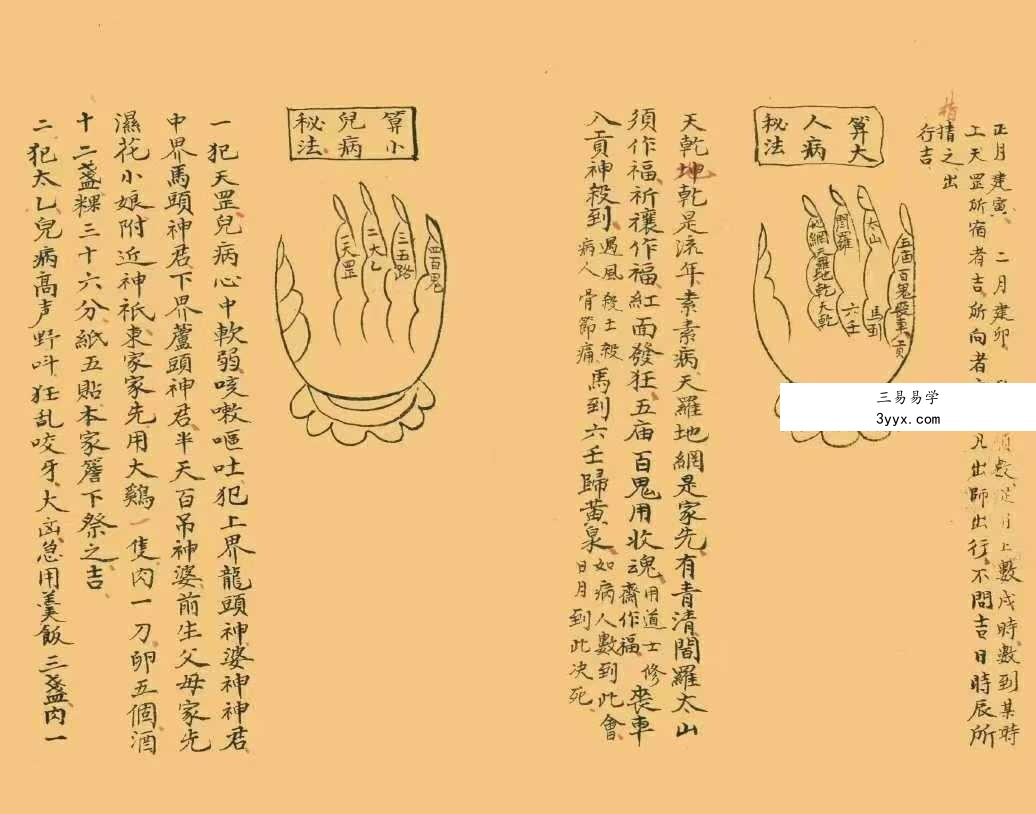 正月建寅 二月建卯 順數從月上數戌時數到某時
上天罡所宿者吉所向者 凡出師出行不問吉日時辰所
指
猜之出
行吉
三易易学
3yyx.com
算大
人病
秘法
五庙百鬼喪車入貢
太山
馬到
閻羅
六壬
地網天羅地乾天乾
天乾坤乾是流年素素病天羅地網是家先有青清閻羅太山
須作福祈禳作福紅面發狂五庙百鬼用收魂用道士修齋作福喪車
入貢神殺到遇風殺土殺病人骨節痛馬到六壬歸黄泉如病人數到此會日月到此决死
算小
兒病
秘法
四百鬼
三五路
二太乚
一天罡
一犯天罡兒病心中軟弱咳嗽嘔吐犯上界龍頭神婆神神君
中界馬頭神君下界蘆頭神君半天百吊神婆前生父母家先
濕花小娘附近神祇東家家先用大鷄一隻肉一刀卵五個酒
十二盞粿三十六分紙五貼本家簷下祭之吉
二犯太乚兒病高声野呌狂乱咬牙大凶急用羹飯三盞肉一